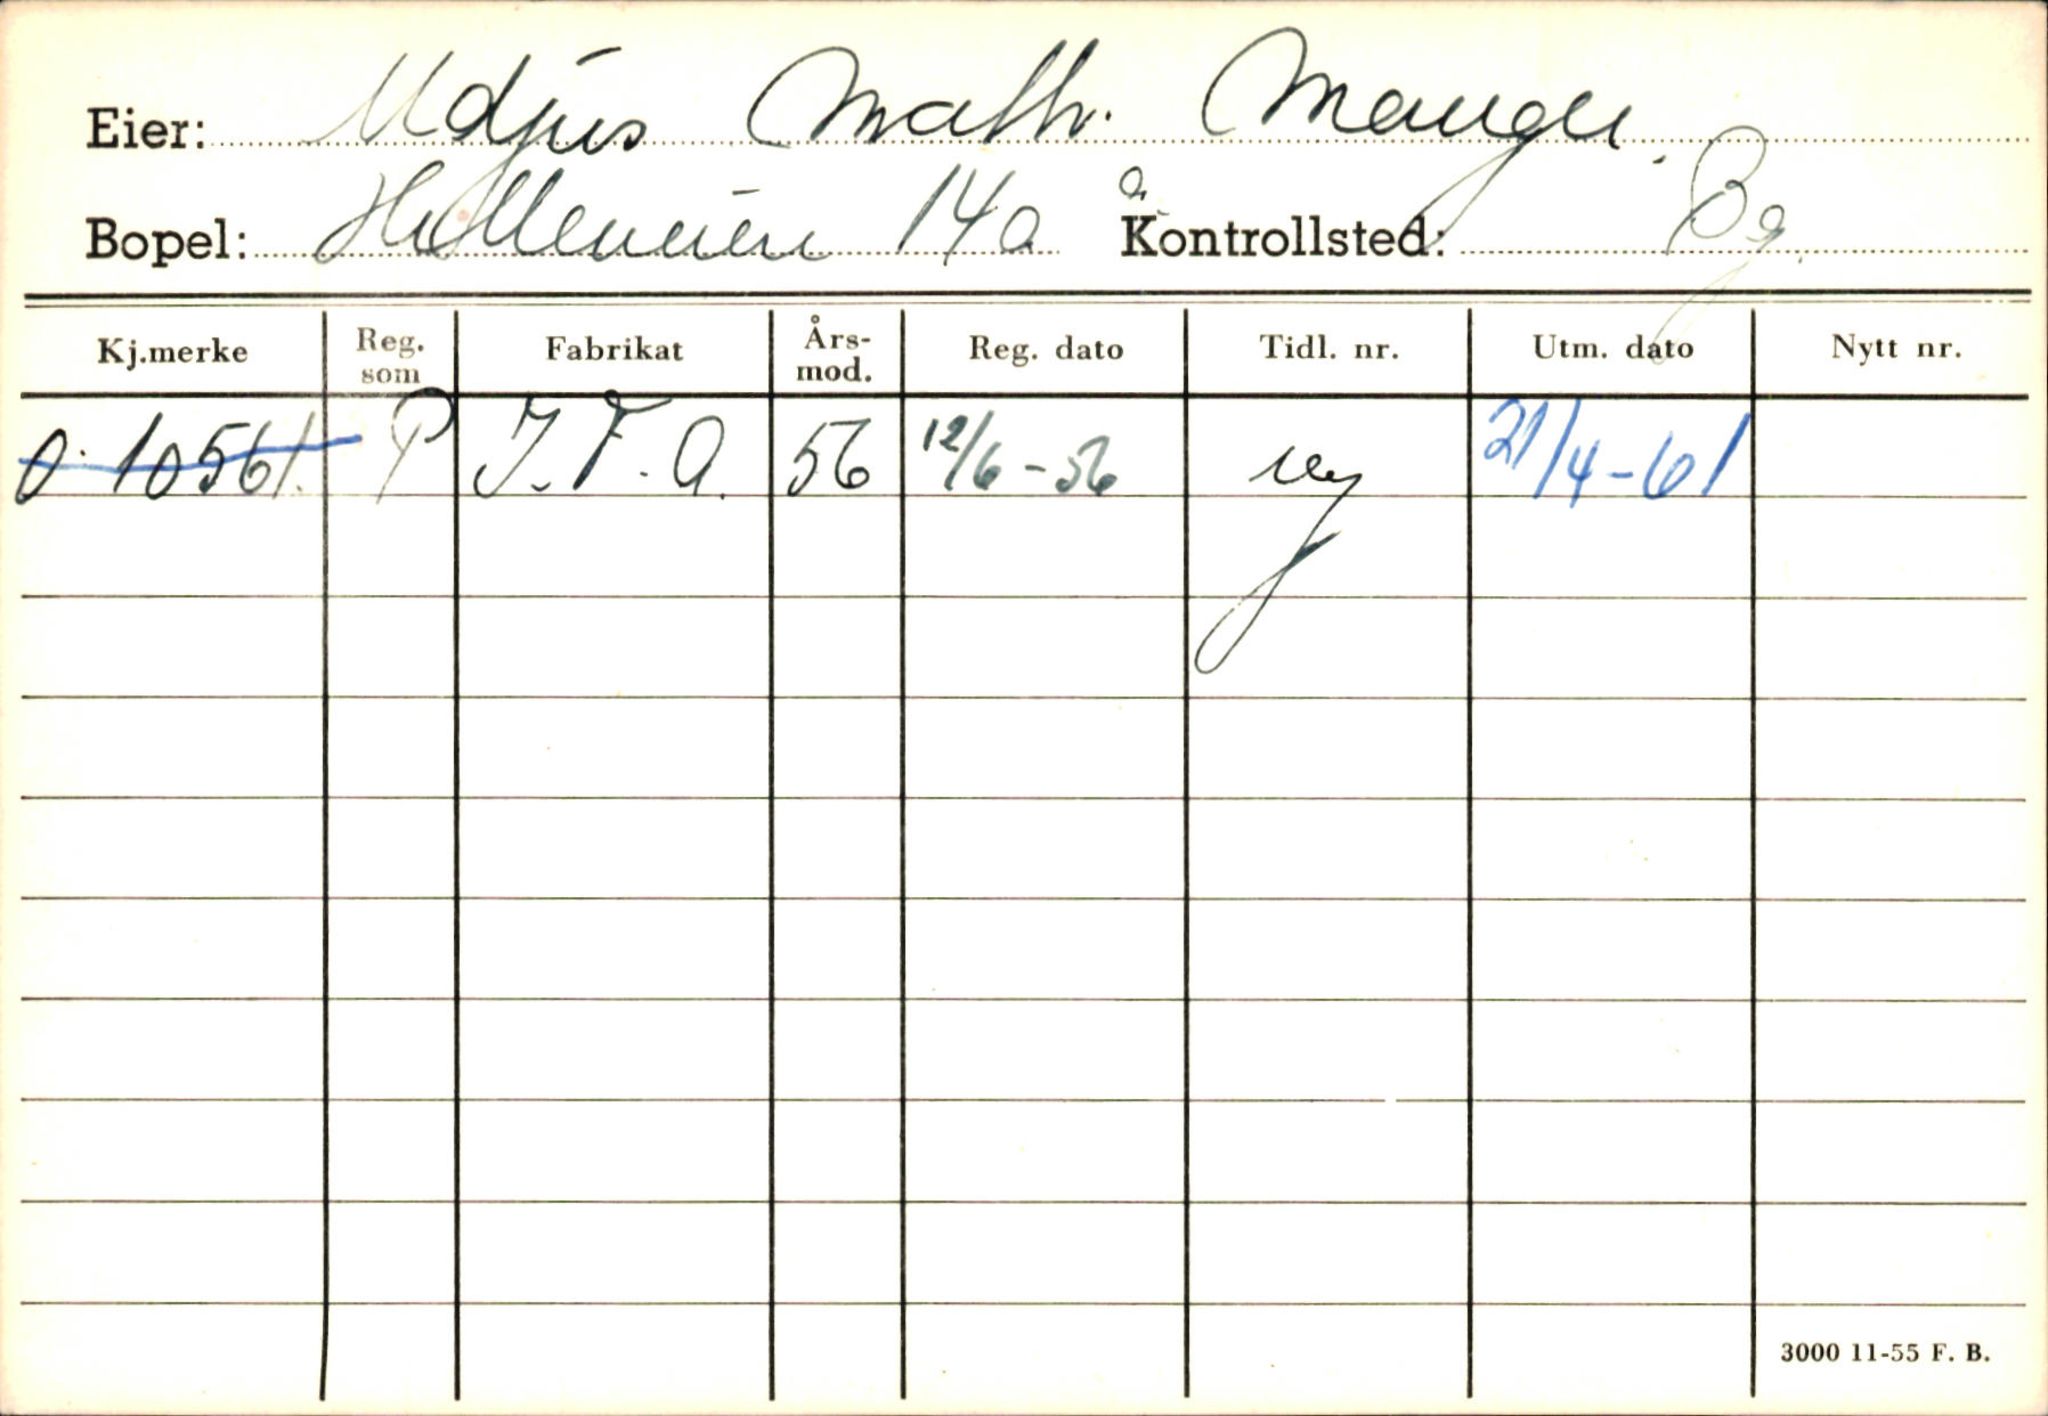 Eier: Udjus Math. Mange.
Bopel: 14a Kontrollsted: Bg.
Kj.merke Reg. som Fabrikat Års-mod. Reg. dato Tidl. nr. Utm. dato Nytt nr.
O. 10561. P I.F.A. 56 12/6-56 Ny 21/4-61
3000 11-55 F. B.